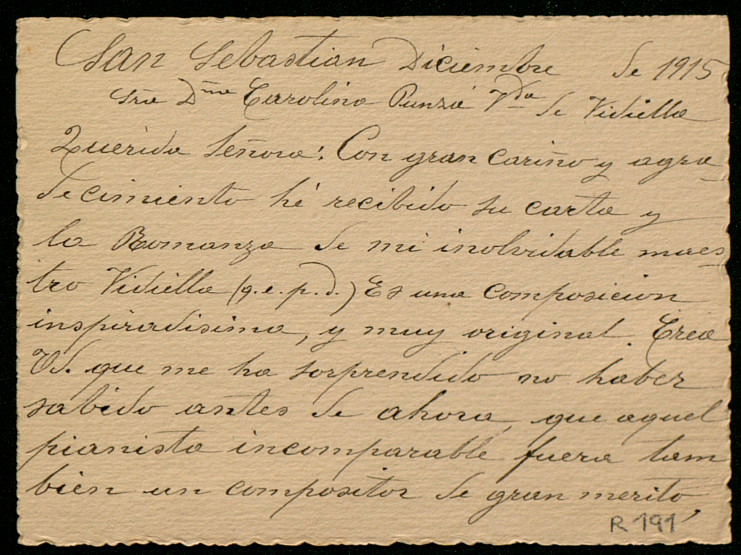 San Sebastian Diciembre de 1915
Sra Dma Carolina Punzá Vda de Vidiella
Querida Señora: Con gran cariño y agra-
decimiento hé recibido su carta y
la Romanza de mi inolvidable maes-
tro Vidiella (q.e.p.d.) Es una composicion
inspiradisima, y muy original. Crea
Vd. que me ha sorprendido no haber
sabido antes de ahora, que aquel
pianista incomparable fuera tam
bien un compositor de gran merito
R 191